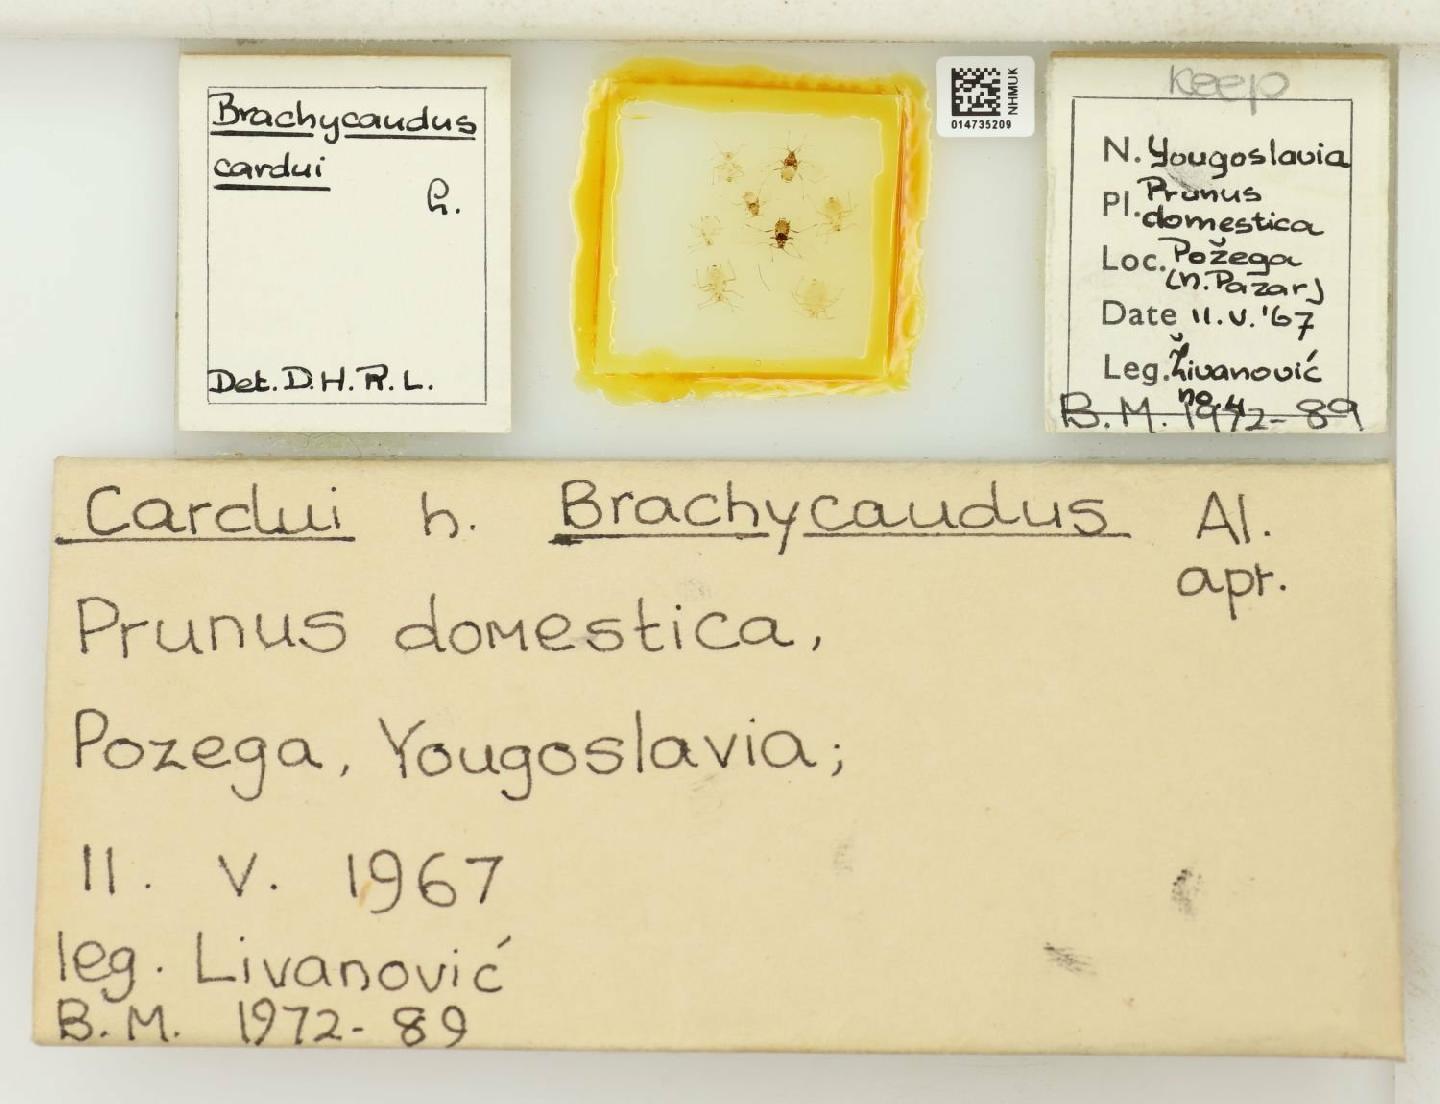 Brachycaudus
cardui
L.
Det. D.H.R.L.
NHMUK
014735209
Keep
N. Yougoslavia
Pl. Prunus
domestica
Loc. Požega
(n. Pazar)
Date 11.V.'67
Leg. Živanović
no. 4
B.M. 1972-89
Cardui h. Brachycaudus Al.
apt.
Prunus domestica,
Pozega, Yougoslavia;
11. V. 1967
leg. Livanović
B.M. 1972-89